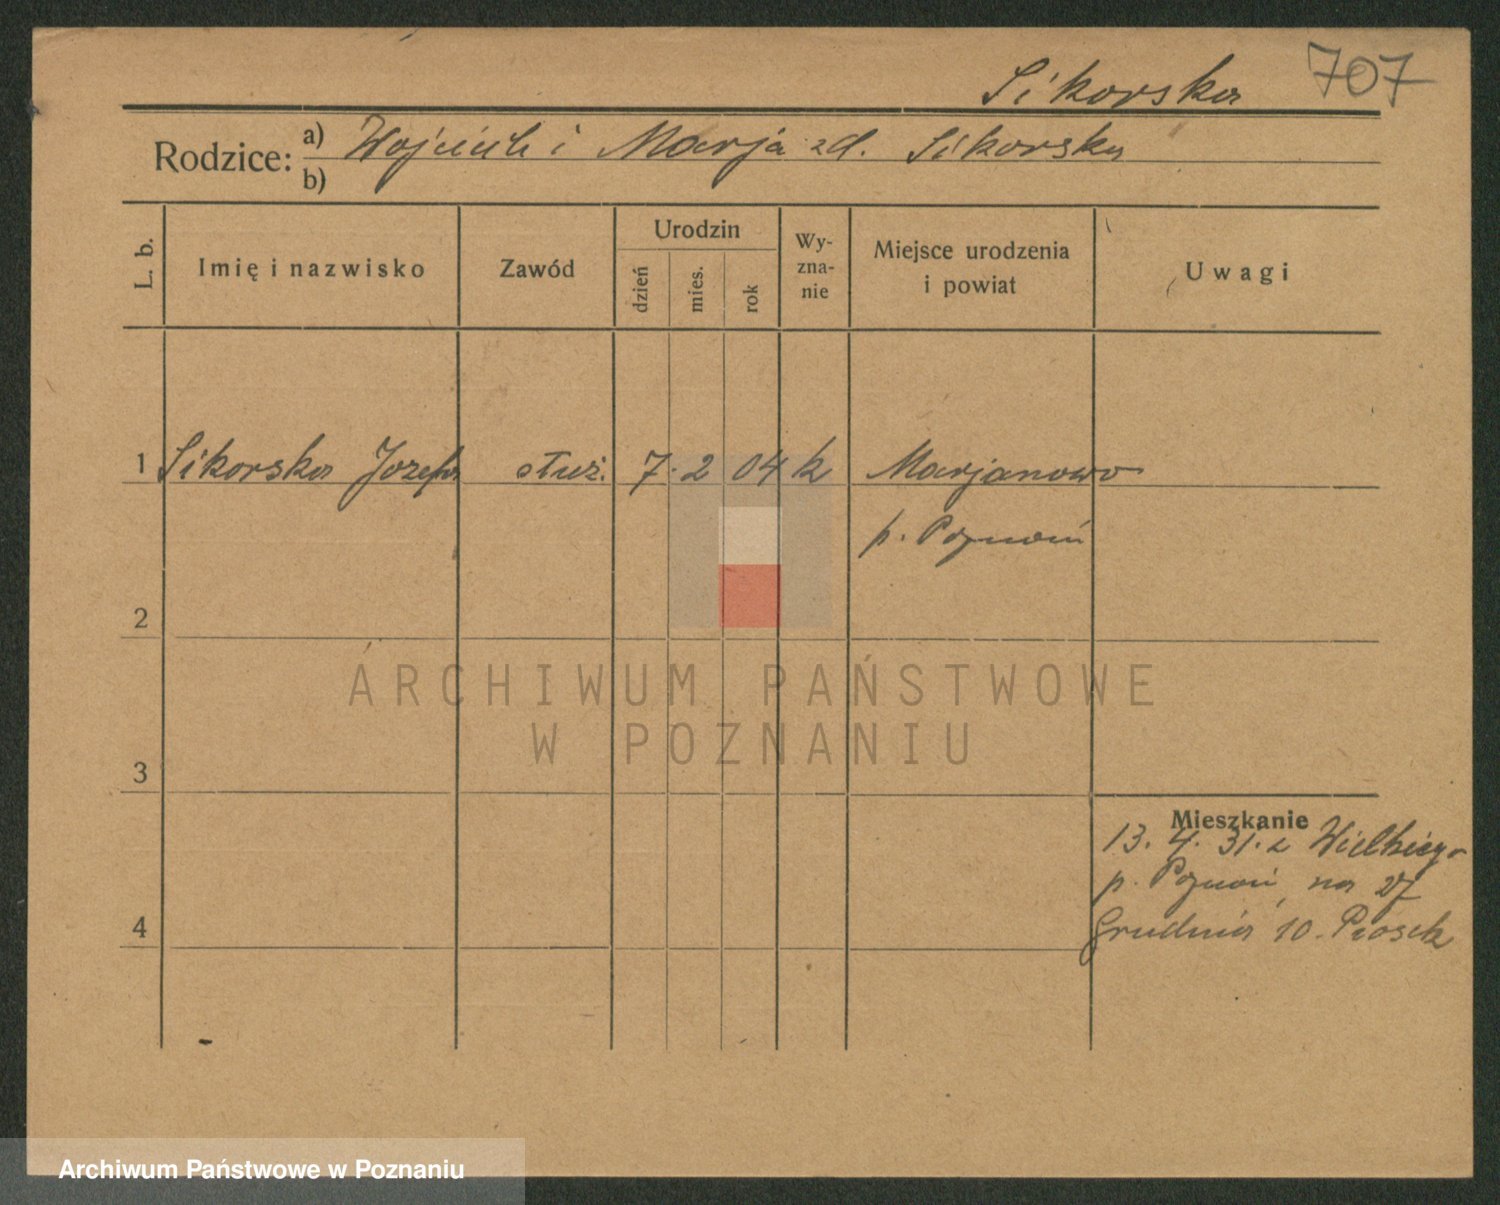 Sikorska 707
Rodzice: a) Wojciech i Marja zd. Sikorska
b)
L. b. Imię i nazwisko Zawód Urodzin dzień mies. rok Wy-zna-nie Miejsce urodzenia i powiat Uwagi
1 Sikorska Jozefa służ. 7. 2 04 k Marjanowo
p. Poznań
2
ARCHIWUM PAŃSTWOWE
W POZNANIU
3
Mieszkanie
13. 4. 31. z Wielkiego
p. Poznań na 27
Grudnia 10.
4
Archiwum Państwowe w Poznaniu